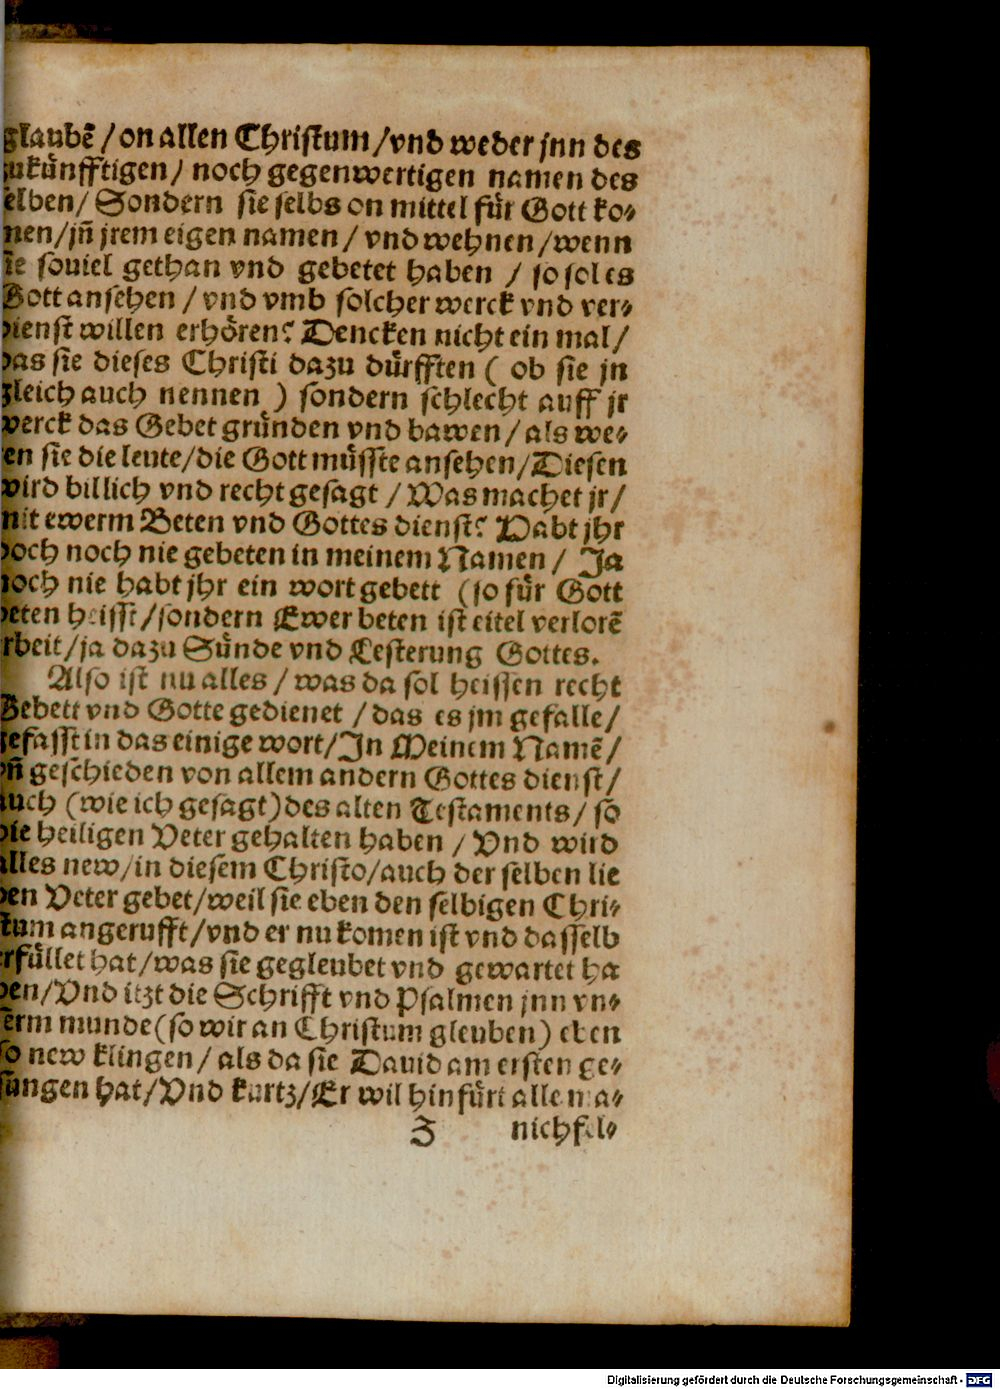 glaubē / on allen Christum / vnd weder jnn des
zukünfftigen / noch gegenwertigen namen des
selben / Sondern sie selbs on mittel für Gott ko⸗
nen / jñ jrem eigen namen / vnd wehnen / wenn
sie souiel gethan vnd gebetet haben / so sol es
Gott ansehen / vnd vmb solcher werck vnd ver⸗
dienst willen erhören? Dencken nicht ein mal /
das sie dieses Christi dazu dürfften ( ob sie jn
gleich auch nennen ) sondern schlecht auff jr
werck das Gebet gründen vnd bawen / als we⸗
ren sie die leute / die Gott müsste ansehen / Diesen
wird billich vnd recht gesagt / Was machet jr /
mit ewerm Beten vnd Gottes dienst? Habt jhr
doch noch nie gebeten in meinem Namen / Ja
noch nie habt jhr ein wort gebett (so für Gott
beten heisst / sondern Ewer beten ist eitel verlorē
arbeit / ja dazu Sünde vnd Lesterung Gottes.
Also ist nu alles / was da sol heissen recht
Gebett vnd Gotte gedienet / das es jm gefalle /
gefasst in das einige wort / In Meinem Namē /
vñ geschieden von allem andern Gottes dienst /
auch (wie ich gesagt) des alten Testaments / so
die heiligen Veter gehalten haben / Vnd wird
alles new / in diesem Christo / auch der selben lie
ben Veter gebet / weil sie eben den selbigen Chri⸗
stum angerufft / vnd er nu komen ist vnd dasselb
erfüllet hat / was sie gegleubet vnd gewartet ha
ben / Vnd itzt die Schrifft vnd Psalmen jnn vn⸗
serm munde (so wir an Christum gleuben) eben
so new klingen / als da sie Dauid am ersten ge⸗
sungen hat / Vnd kurtz / Er wil hinfürt alle ma⸗
Z nichfel⸗
Digitalisierung gefördert durch die Deutsche Forschungsgemeinschaft - DFG